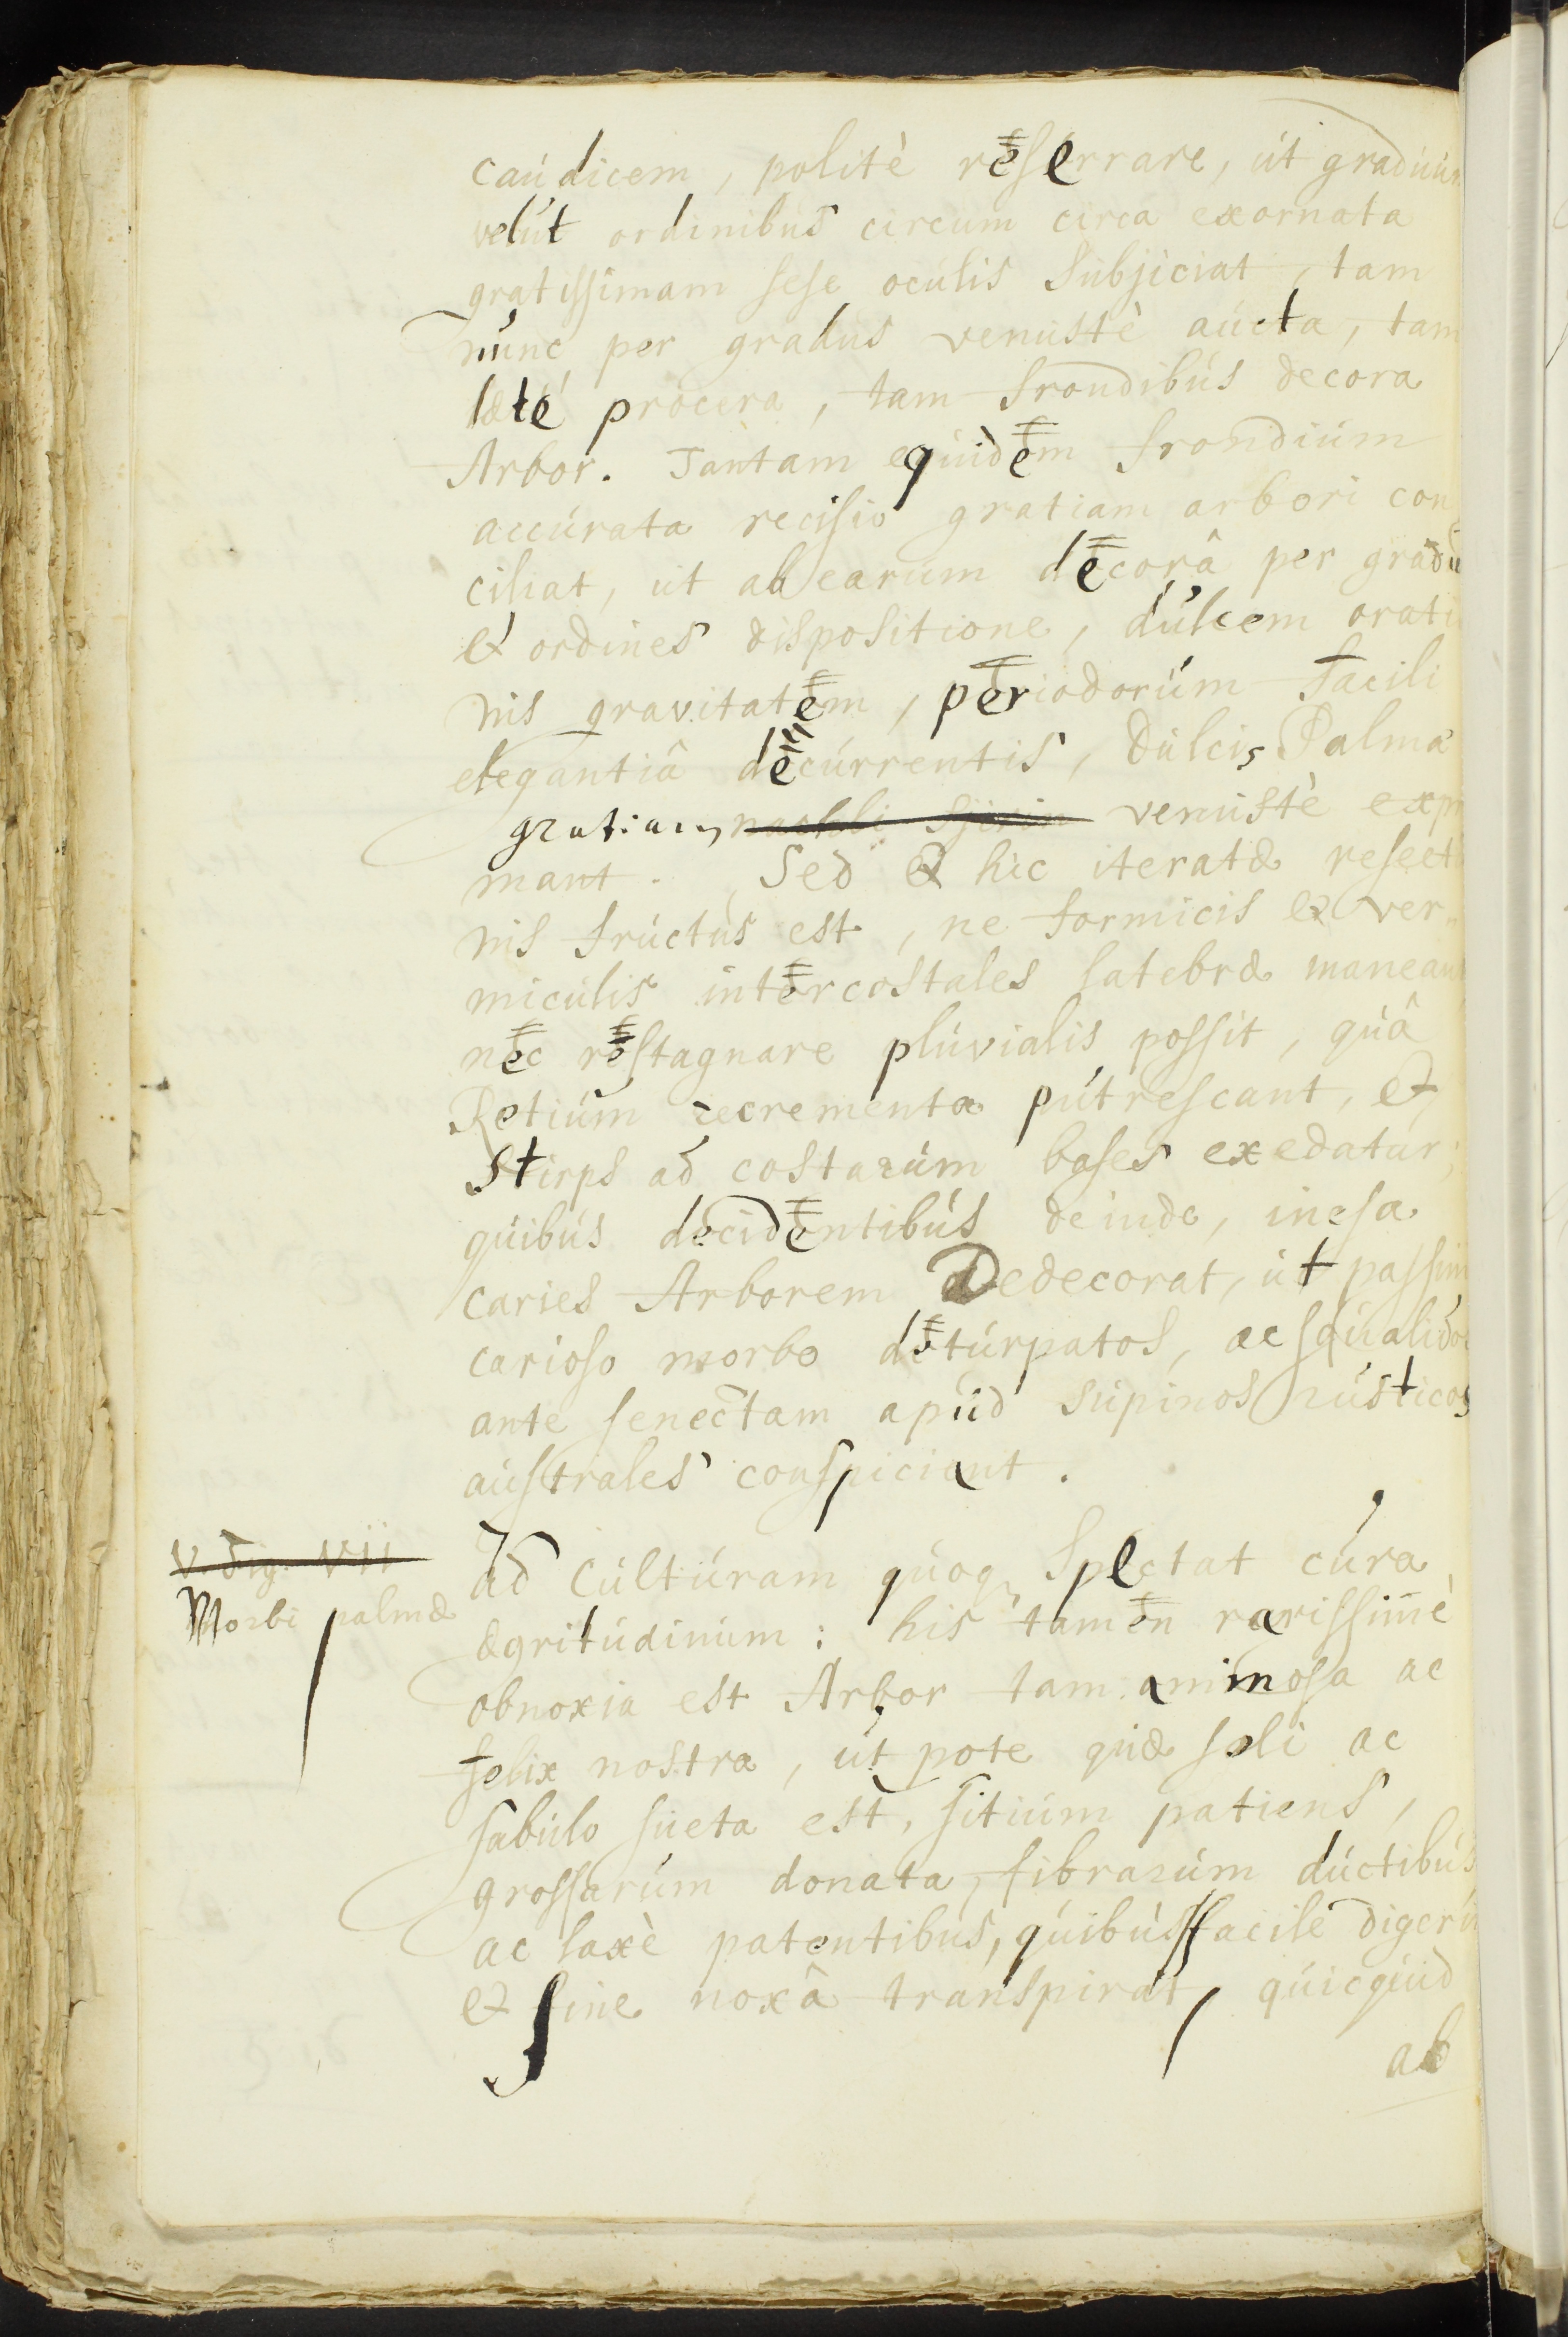 caúdicem, politè reserrare, út gradúúm
velút ordinibús circum circa exornata
gratissimam sese ocúlis Súbjiciat, tam
núnc per gradus venústè aúcta, tam
lætè procera, tam frondibús decora
Arbor. Tantam equidem frondiúm
accúrata recisio gratiam arbori con
ciliat, út ab earúm decorâ per gradú
& ordines dispositione, dúlcem oratio
nis gravitatem, periodorúm facili
elegantiâ decúrrentis, dúlcis Palmæ
gratiam nachli Sjirin venústè expri
mant. Sed & hic iteratæ resectio
nis frúctús est, ne formicis & ver
micúlis intercostales latebræ maneant,
nec restagnare plúvialis possit, qúâ
Retiúm recrementa pútrescant, &
Stirps ad costarúm bases exedatúr;
qúibús decidentibús deinde, inesa
caries Arborem Dedecorat, út passim
carioso morbo detúrpatos, ac sqúalidos
ante senectam apúd súpinos rústicos
aústrales conspiciant.
V. Fig. VII
Morbi palmæ
Ad Cúltúram qúoq Spectat cúra
ægritúdinúm: his tamen rarissimè
obnoxia est Arbor tam animosa ac
felix nostra, út pote qúæ soli ac
sabúlo súeta est, sitiúm patiens,
grossarúm donata fibrarúm dúctibús
ac laxè patentibús, qúibús facile digerú
& sine noxâ transpirat, qúicqúid
ab